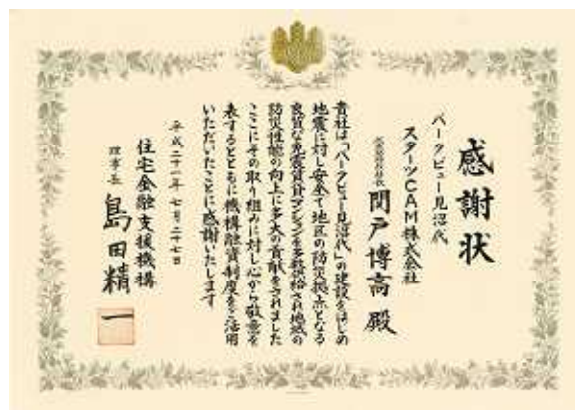 感謝状
パークビュー見沼代
スターツCAM株式会社
代表取締役社長 関戸博高 殿
貴社は「パークビュー見沼代」の建設をはじめ
地震に対し安全で地区の防災拠点となる
良質な免震賃貸マンションを多数供給され地域の
防災性能の向上に多大の貢献をされました
ここにその取り組みに対し心から敬意を
表するとともに機構融資制度をご活用
いただいたことに感謝いたします
平成二十一年 七月二十七日
住宅金融支援機構
理事長 島田精一